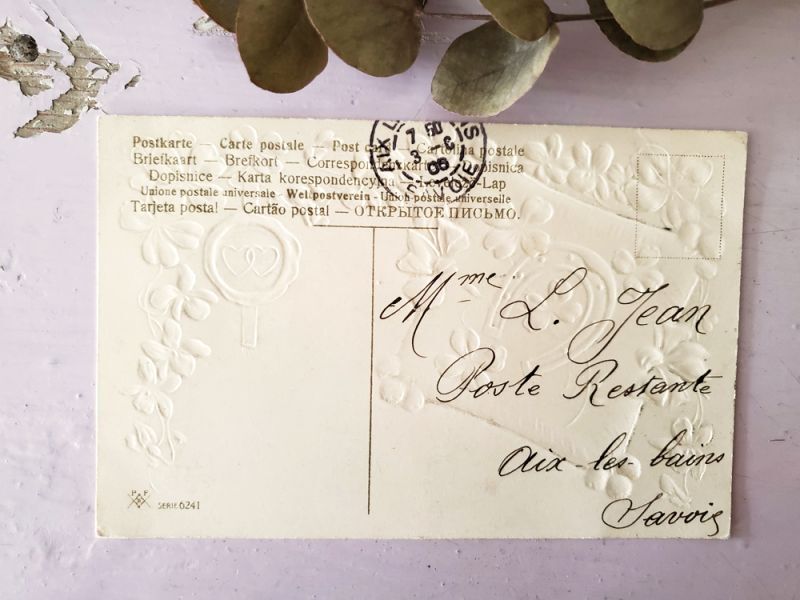 Postkarte — Carte postale — Post card — Cartolina postale
Briefkaart — Brefkort — Correspondenzkarte — Dopisnica
Dopisnice — Karta korespondencyjna — Levelező-Lap
Union postale universale - Weltpostverein - Union postale universelle
Tarjeta postal — Cartão postal — ОТКРЫТОЕ ПИСЬМО.
AIX L NS
7 50
3 - 6
06
SAVOIE
Mme L. Jean
Poste Restante
Aix-les-bains
Savoie
P F
SERIE 6241